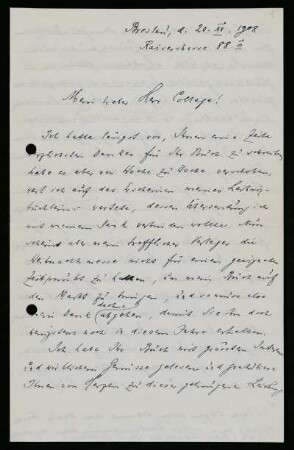 Breslau, d. 20. XI. 1908
Kaiserstrasse 88 II
Mein lieber Herr College!
Ich hatte längst vor, Ihnen eine Zeile
herzlichsten Dankes für Ihr Buch zu schreiben,
habe es aber von Woche zu Woche verschoben,
weil ich auf das Erscheinen meines
büchleins wartete, dessen Übersendung ich
mit meinem Dank verbinden wollte. Nun
scheint aber mein trefflicher Verleger die
Weihnachtsmesse nicht für einen geeigneten
Zeitpunkt zu halten, um mein Buch auf
den Markt zu bringen, und so muss ich
mein Dank abgeben, damit Sie ihn doch
wenigstens noch in diesem Jahre erhalten.
Ich habe Ihr Buch mit grösstem Interesse
und wirklichem Genusse gelesen und gratuliere
Ihnen von Herzen zu dieser gelungenen Leistung